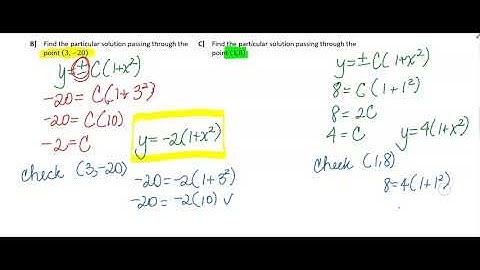 B) Find the particular solution passing through the
point (3, −20)
y=±C(1+x²)
-20 = C(1+3²)
-20 = C(10)
-2 = C
y=-2(1+x²)
check (3,-20)
-20=-2(1+3²)
-20=-2(10) ✓
C) Find the particular solution passing through the
point (1,8)
y=±C(1+x²)
8=C(1+1²)
8=2C
4=C
y=4(1+x²)
check (1,8)
8=4(1+1²)